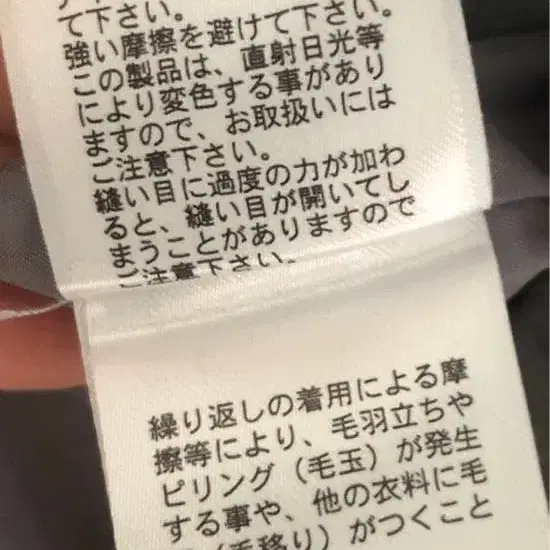 て下さい。
強い摩擦を避けて下さい。
この製品は、直射日光等
により変色する事があり
ますので、お取扱いには
ご注意下さい。
縫い目に過度の力が加わ
ると、縫い目が開いてし
まうことがありますので
ご注意下さい。
繰り返しの着用による摩
擦等により、毛羽立ちや
ピリング（毛玉）が発生
する事や、他の衣料に毛
（毛移り）がつくこと